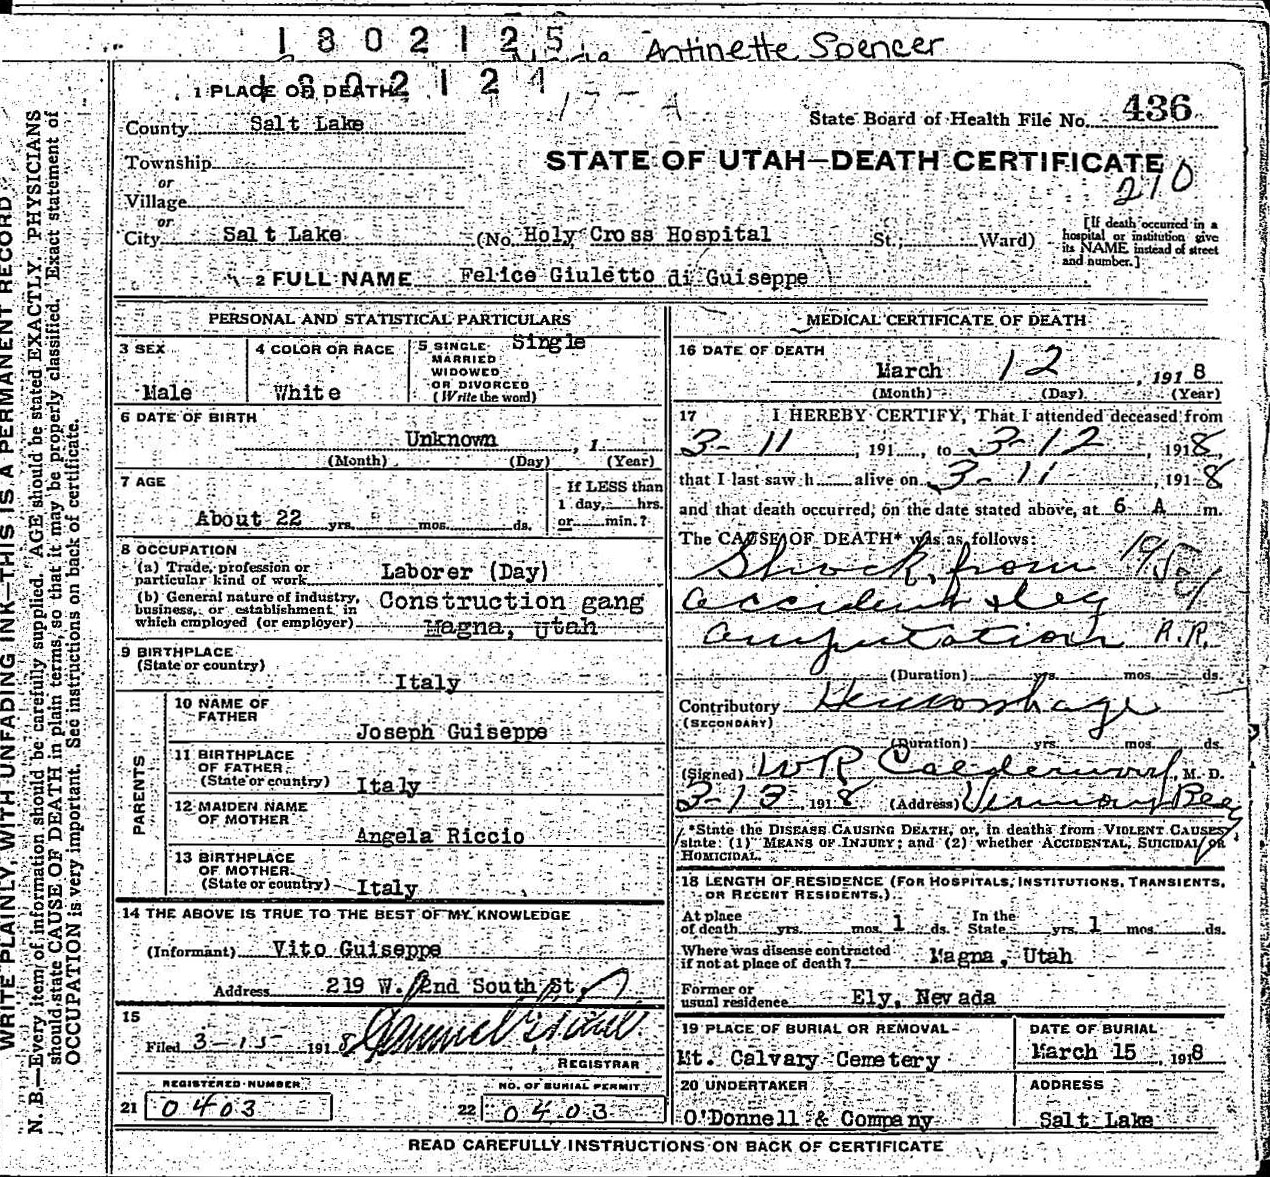 1802125
Antinette Spencer
1802124
1 PLACE OF DEATH
County Salt Lake
State Board of Health File No. 436
Township
STATE OF UTAH—DEATH CERTIFICATE
or
210
Village
or
City Salt Lake (No. Holy Cross Hospital St.; Ward)
[If death occurred in a hospital or institution give its NAME instead of street and number.]
2 FULL NAME Felice Giuletto di Guiseppe
PERSONAL AND STATISTICAL PARTICULARS
3 SEX
Male
4 COLOR OR RACE
White
5 SINGLE Single
MARRIED
WIDOWED
OR DIVORCED
(Write the word)
6 DATE OF BIRTH
Unknown, 1
(Month) (Day) (Year)
7 AGE
About 22 yrs. mos. ds.
If LESS than
1 day, hrs.
or min.?
8 OCCUPATION
(a) Trade, profession or
particular kind of work Laborer (Day)
(b) General nature of industry,
business, or establishment in Construction gang
which employed (or employer) Magna, Utah
9 BIRTHPLACE
(State or country)
Italy
PARENTS
10 NAME OF
FATHER
Joseph Guiseppe
11 BIRTHPLACE
OF FATHER
(State or country) Italy
12 MAIDEN NAME
OF MOTHER
Angela Riccio
13 BIRTHPLACE
OF MOTHER
(State or country) Italy
14 THE ABOVE IS TRUE TO THE BEST OF MY KNOWLEDGE
(Informant) Vito Guiseppe
Address 219 W. 2nd South St.
15
Filed 3-15- 1918
REGISTRAR
REGISTERED NUMBER
21 0403
NO. OF BURIAL PERMIT
22 0403
MEDICAL CERTIFICATE OF DEATH
16 DATE OF DEATH
March 12, 1918
(Month) (Day) (Year)
17 I HEREBY CERTIFY, That I attended deceased from
3-11, 191, to 3-12, 1918,
that I last saw h alive on 3-11, 1918
and that death occurred, on the date stated above, at 6 A m.
The CAUSE OF DEATH* was as follows:
Shock from
accident & leg
amputation R.R.
(Duration) yrs. mos. ds.
Contributory Hemorrhage
(SECONDARY)
(Duration) yrs. mos. ds.
(Signed) WR Calderwood, M. D.
3-13, 1918 (Address) Vermont Bldg
*State the DISEASE CAUSING DEATH, or, in deaths from VIOLENT CAUSES,
state (1) MEANS OF INJURY; and (2) whether ACCIDENTAL, SUICIDAL or
HOMICIDAL.
18 LENGTH OF RESIDENCE (FOR HOSPITALS, INSTITUTIONS, TRANSIENTS,
OR RECENT RESIDENTS.)
At place
of death yrs. mos. 1 ds. In the
State yrs. 1 mos. ds.
Where was disease contracted
if not at place of death? Magna, Utah
Former or
usual residence Ely, Nevada
19 PLACE OF BURIAL OR REMOVAL
Mt. Calvary Cemetery
DATE OF BURIAL
March 15, 1918
20 UNDERTAKER
O'Donnell & Company
ADDRESS
Salt Lake
READ CAREFULLY INSTRUCTIONS ON BACK OF CERTIFICATE
WRITE PLAINLY, WITH UNFADING INK—THIS IS A PERMANENT RECORD
N. B.—Every item of information should be carefully supplied. AGE should be stated EXACTLY. PHYSICIANS
should state CAUSE OF DEATH in plain terms, so that it may be properly classified. Exact statement of
OCCUPATION is very important. See instructions on back of certificate.